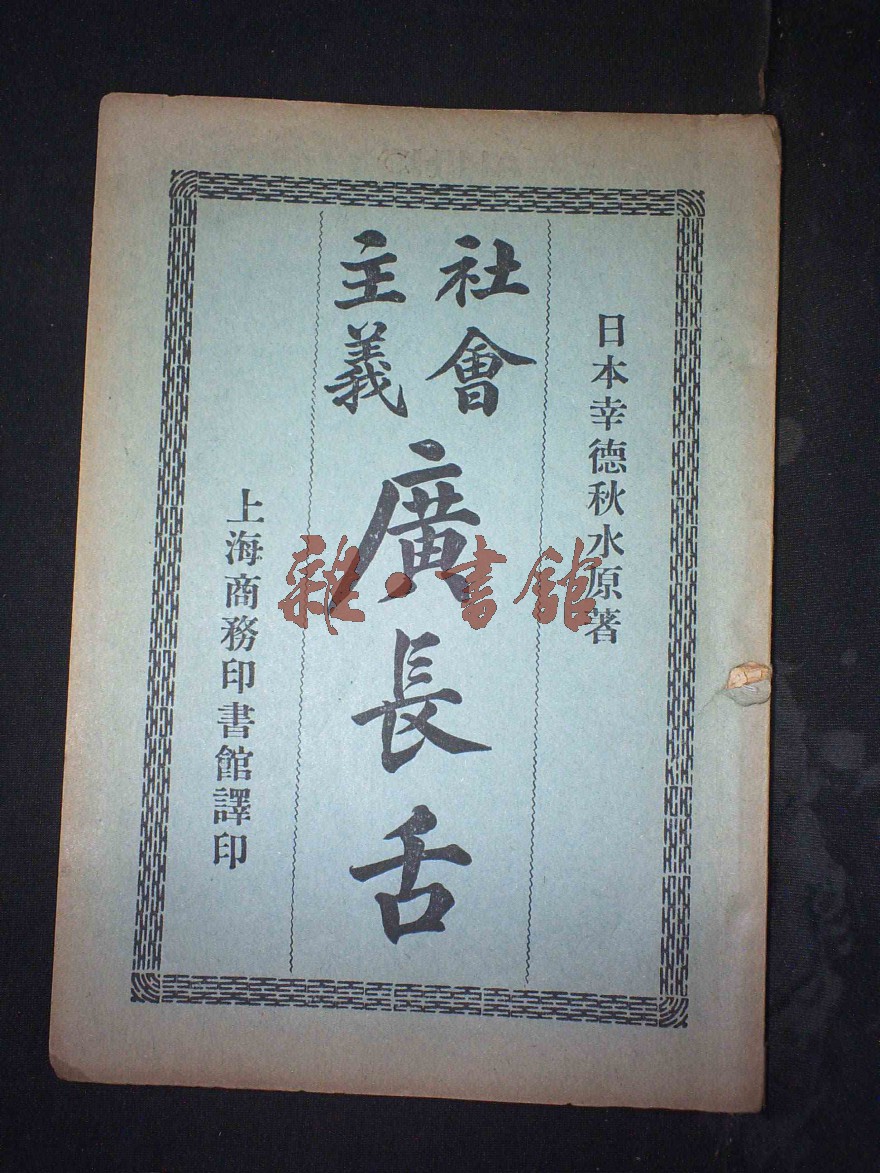 日本幸德秋水原著
社會主義
廣長舌
上海商務印書館譯印
雜·書館